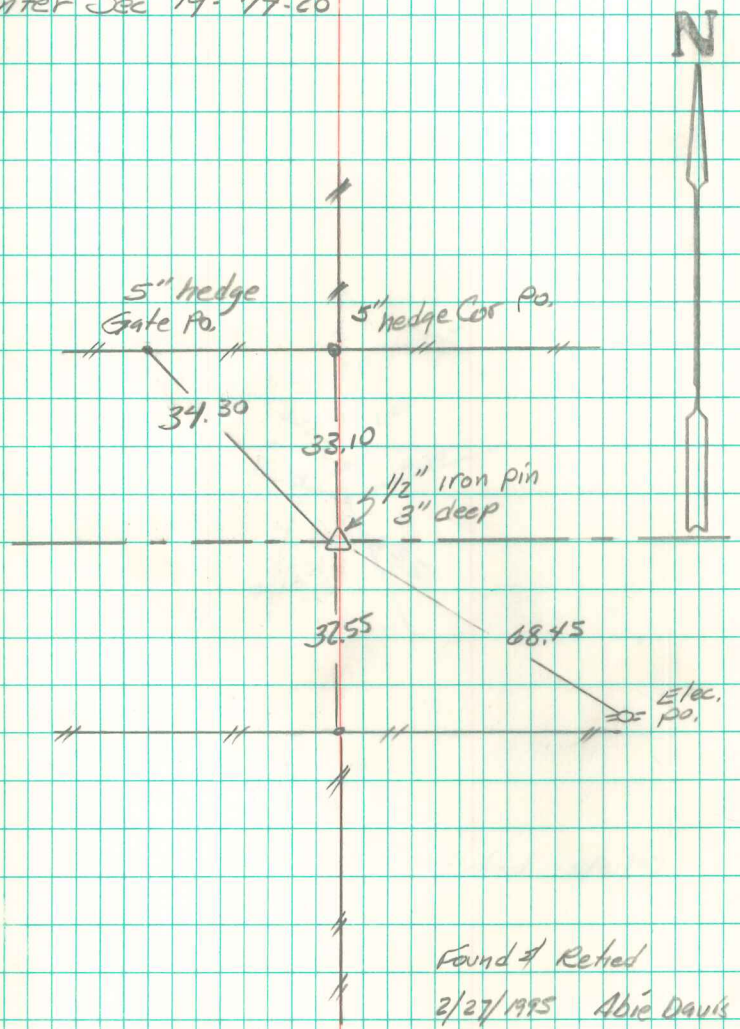 nter Sec 19-19-20
N
5" hedge
Gate Po.
5" hedge Cor Po.
34.30
33.10
1/2" iron pin
3" deep
32.55
68.45
Elec.
po.
Found & Retied
2/27/1995 Abie Davis